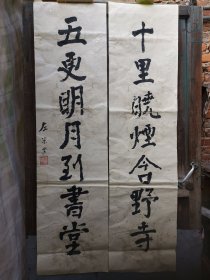 十里曉煙含野寺
五更明月到書堂